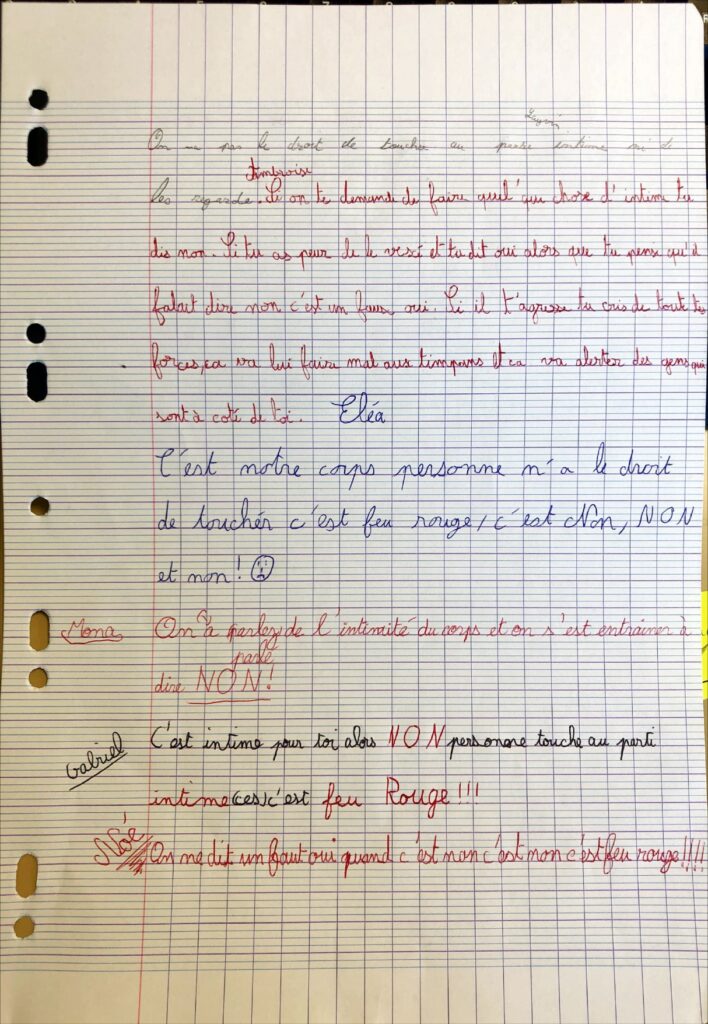 On a pas le droit de toucher au partie intime ni de
Ambroise
les regarde. Si on te demande de faire quel'que chose d'intime tu
dis non. Si tu as peur de le vexé et tu dit oui alors que tu pense qu'il
falait dire non c'est un faux oui. Si il t'agresse tu cris de toute tes
forces, ca va lui faire mal aux timpans et ca va alerter des gens qui
sont à coté de toi. Eléa
C'est notre corps personne n'a le droit
de touchér c'est feu rouge, c'est Non, NON
et non !
Mona On a parlez de l'intimité du corps et on s'est entrainer à
parlé
dire NON !
Gabriel C'est intime pour toi alors NON personne touche au parti
intime (ces) c'est feu Rouge !!!
Noé On ne dit un faut oui quand c'est non c'est non c'est feu rouge !!!!